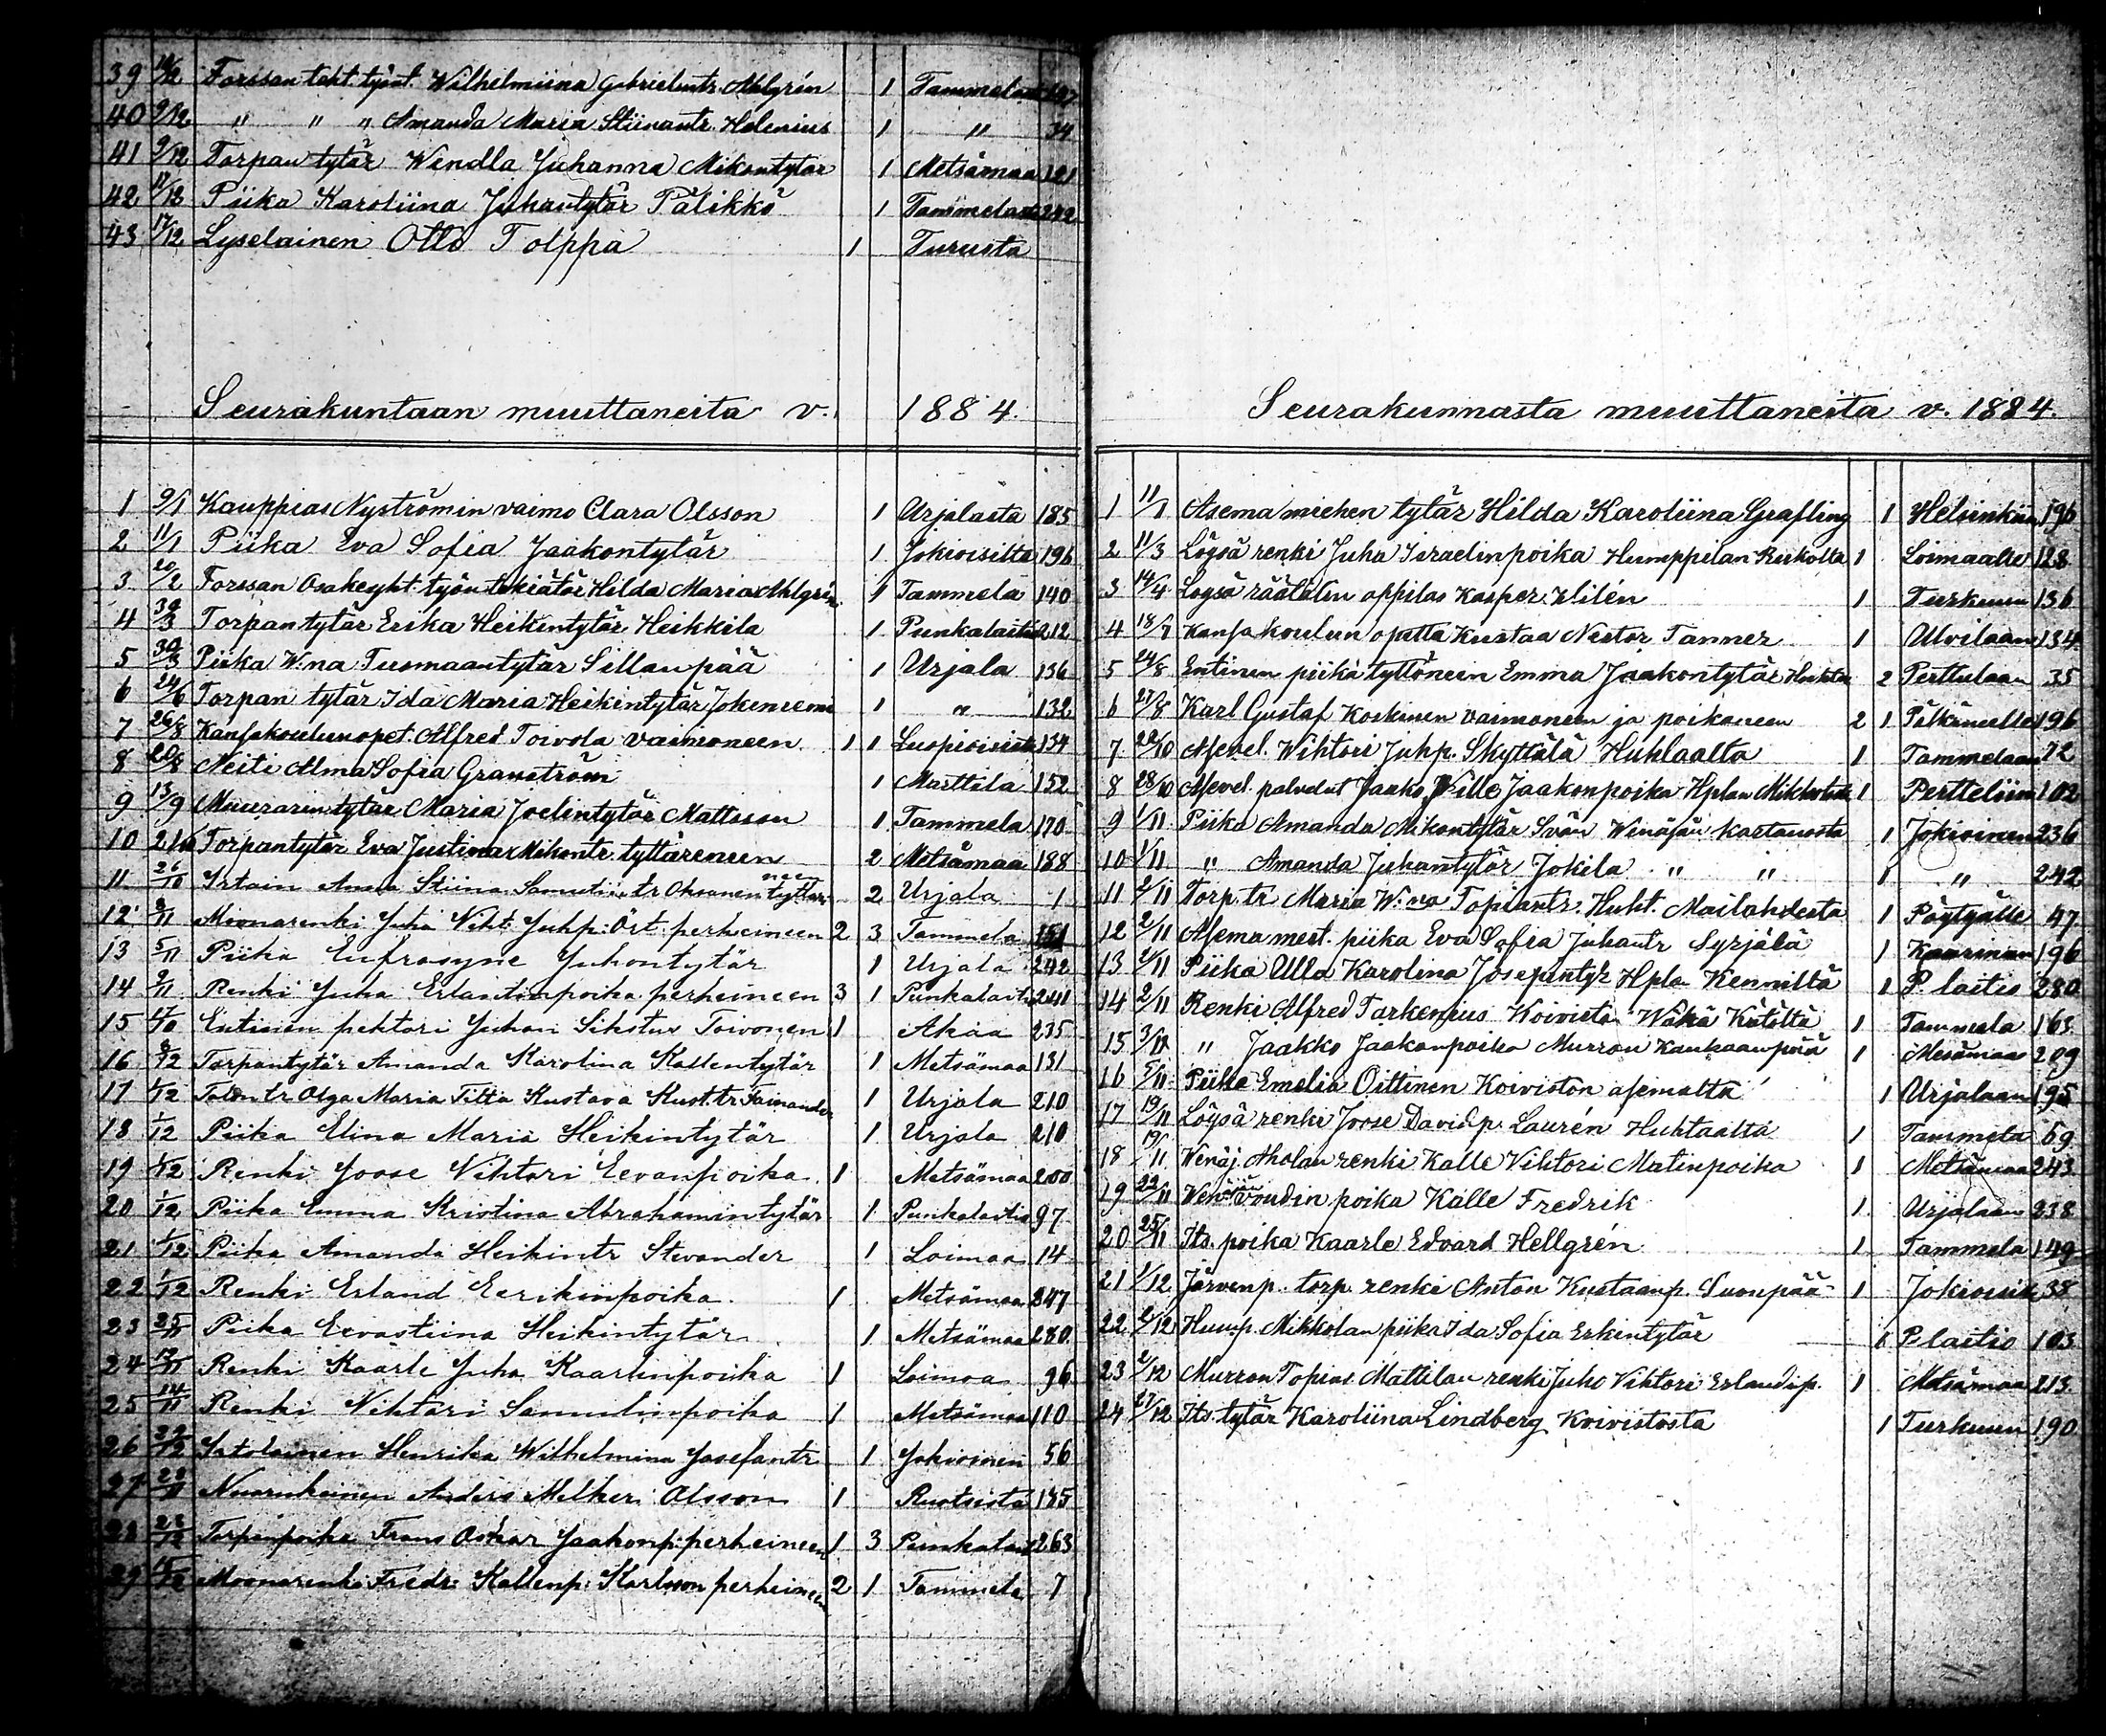 39 Forssan teht. työnt. Wilhelmiina Gabrielintr. Ahlgrén 1 Tammela
40 9/12 " " " Amanda Maria Stiinantr. Helenius 1 " 34
41 9/12 Torpan tytär Wendla Juhanna Mikontytär 1 Metsämaa 121
42 17/12 Piika Karoliina Juhantytär Pälikkö 1 Tammelasta 242
43 17/12 Lyselainen Otto Tolppa 1 Turusta
Seurakuntaan muuttaneita v. 1884.
1 9/1 Kauppias Nyströmin vaimo Clara Olsson 1 Urjalasta 185
2 11/1 Piika Eva Sofia Jaakontytär 1 Jokioisilta 196
3 20/2 Forssan Osakeyht. työntekiätär Hilda Maria Ahlgrén 1 Tammela 140
4 30/3 Torpan tytär Erika Heikintytär Heikkila 1 Punkalaitio 212
5 30/3 Piika W:na Tuomaantytär Sillanpää 1 Urjala 136
6 24/6 Torpan tytär Ida Maria Heikintytär Jokeniemi 1 " 132
7 26/8 Kansakoulunopet. Alfred Toivola vaimoneen 1 1 134
8 28/8 Neiti Alma Sofia Granström 1 Marttila 152
9 13/9 Muurarin tytär Maria Joelintytär Mattsson 1 Tammela 170
10 2/10 Torpantytär Eva Justina Mikontr. tyttäreneen 2 Metsämaa 188
11 26/10 Anna Stiina Oksanen tyttärineen 2 Urjala 1
12 2/11 Moonarenki Juha Viht. Juhp: Öst. perheineen 2 3 Tammela 151
13 5/11 Piika Eufrosyne Juhontytär 1 Urjala 242
14 9/11 Renki Juha Erlantinpoika perheineen 3 1 Punkalaiti 241
15 Entinen pehtori Juhan Sikstus Toivonen 1 Akaa 235
16 9/12 Torpantytär Amanda Karolina Kallentytär 1 Metsämaa 131
17 1/12 Olga Maria Titta Kustava Kust.tr Fainander 1 Urjala 210
18 1/12 Piika Elina Maria Heikintytär 1 Urjala 210
19 1/12 Renki Joose Vihtori Eevanpoika 1 Metsämaa 200
20 1/12 Piika Emma Kristina Abrahamintytär 1 Punkalaitio 97
21 1/12 Piika Amanda Heikintr Stevander 1 Loimaa 14
22 1/12 Renki Erland Eerikinpoika 1 Metsämaa 247
23 25/11 Piika Eevastiina Heikintytär 1 Metsämaa 280
24 Renki Kaarle Juha Kaarlenpoika 1 Loimaa 96
25 14/11 Renki Vihtori Samulinpoika 1 Metsämaa 110
26 22/12 Henrika Wilhelmina Josefantr 1 Jokioinen 56
27 Nuorukainen Anders Melker Olsson 1 Ruotsista 185
28 Torpanpoika Frans Oskar Jaakonp: perheineen 1 3 Punkalait 263
29 Moonarenki Fredr. Kallenp: Karlsson perheineen 2 1 Tammela 7
Seurakunnasta muuttaneita v. 1884.
1 11/1 Asemamiehen tytär Hilda Karoliina Grafling 1 Helsinkiin 196
2 11/3 Löysä renki Juha Israelinpoika Humppilan 1 Loimaalle 128
3 14/4 Löysä räätälin oppilas Kasper Wilén 1 Turkuun 136
4 18/7 Kansakoulun opetta Kustaa Nestor Tanner 1 Ulvilaan 134
5 24/8 Entinen piika tyttöneen Emma Jaakontytär 2 Perttulaan 35
6 27/8 Karl Gustaf Koskinen vaimoneen ja poikaneen 2 1 Pälkäneelle 196
7 22/10 Asevel. Wihtori Juhp. Skyttälä Huhtaalta 1 Tammelaan 72
8 28/10 Asevel. palvelut Jaakko Wille Jaakonpoika Hplan 1 Pertteliin 102
9 1/11 Piika Amanda Mikontytär Svän Winäjän kartanosta 1 Jokioinen 236
10 1/11 " Amanda Juhantytär Jokila " " 1 " 242
11 2/11 Torp. tr Maria W:na Topiantr. Huht. Mailahdesta 1 Pöytyälle 47
12 2/11 Asema mest. piika Eva Sofia Juhantr Syrjälä 1 Kaarinaan 196
13 2/11 Piika Ulla Karolina Josepintyt Hpla Kenniltä 1 P. laitio 280
14 2/11 Renki Alfred Tarkenius Koiviston Wähä 1 Tammela 168
15 3/11 " Jaakko Jaakonpoika Murron Kankaanpää 1 Mesämaa 209
16 5/11 Piika Emelia Oittinen Koiviston asemalta 1 Urjalaan 195
17 19/11 Löysä renki Joose Davidp. Laurén Huhtaalta 1 Tammela 69
18 19/11 Wenäj. Aholan renki Kalle Vihtori Matinpoika 1 Metsämaa 243
19 22/11 Wenäjän voudin poika Kalle Fredrik 1 Urjalaan 238
20 25/11 Its. poika Kaarle Edvard Hellgrén 1 Tammela 149
21 1/12 Järvenp. torp. renki Anton Kustaanp. Suonpää 1 Jokioisiin 38
22 2/12 Hump. Mikkolan piika Ida Sofia Erkintytär 1 P. laitio 103
23 2/12 Murron Topias Mattilan renki Juho Vihtori Erlandinp. 1 Metsämaa 213
24 27/12 Its. tytär Karoliina Lindberg Koivistosta 1 Turkuun 190